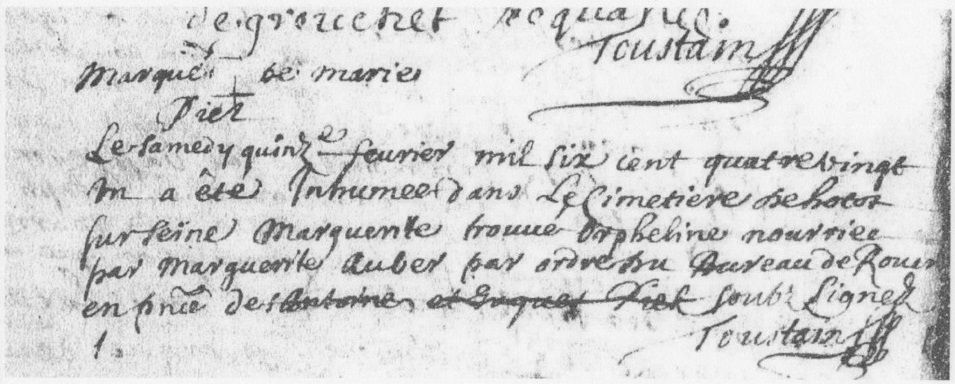 de grouchet
Toustain
Marque de marie
Piel
Le samedy quinze feurier mil six cent quatre vingt
un a été Inhumee dans Le Cimetiere de hotot
sur seine Marguerite trouué orpheline nourrie
par Marguerite Auber par ordre du Bureau de Rouen
en pnce des Antoine et Piel soubz Lignez
Toustain
1